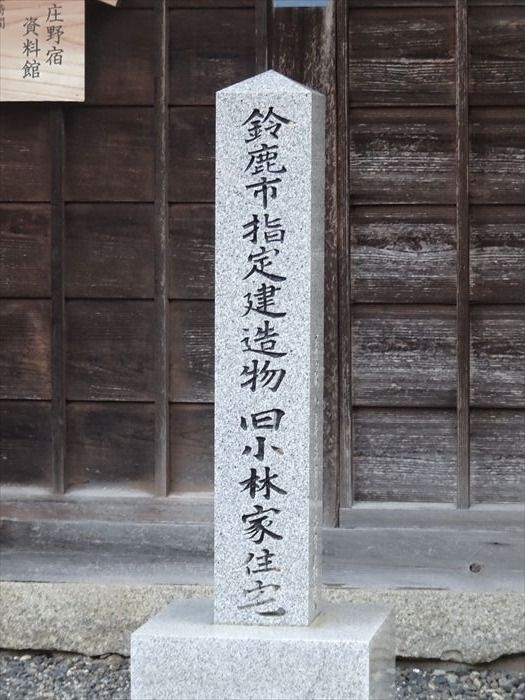 鈴鹿市指定建造物 旧小林家住宅
庄野宿
資料館